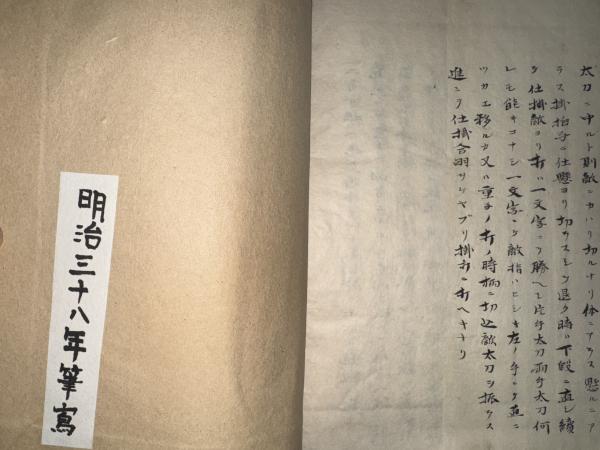 太刀ニ中ルト則敵ニカハリ切ルナリ体ニアラス懸ルニア
ラス掛拍子ニ仕懸ヨリ切カスシテ退ク時ハ下段ニ直シ續
テ仕掛敵ヨリ打ハ一文字ニテ勝ヘシ片手太刀両手太刀何
レモ能キコナシ一文字ニテ敵指ハヒシキ左ノ手ニテ直ニ
ツカエ移ルカ又ハ重子ノ打ノ時柄ニ切込敵太刀ヲ振カス
進ンテ仕掛合羽サシヤブリ掛打ニ打ヘキナリ
明治三十八年筆寫